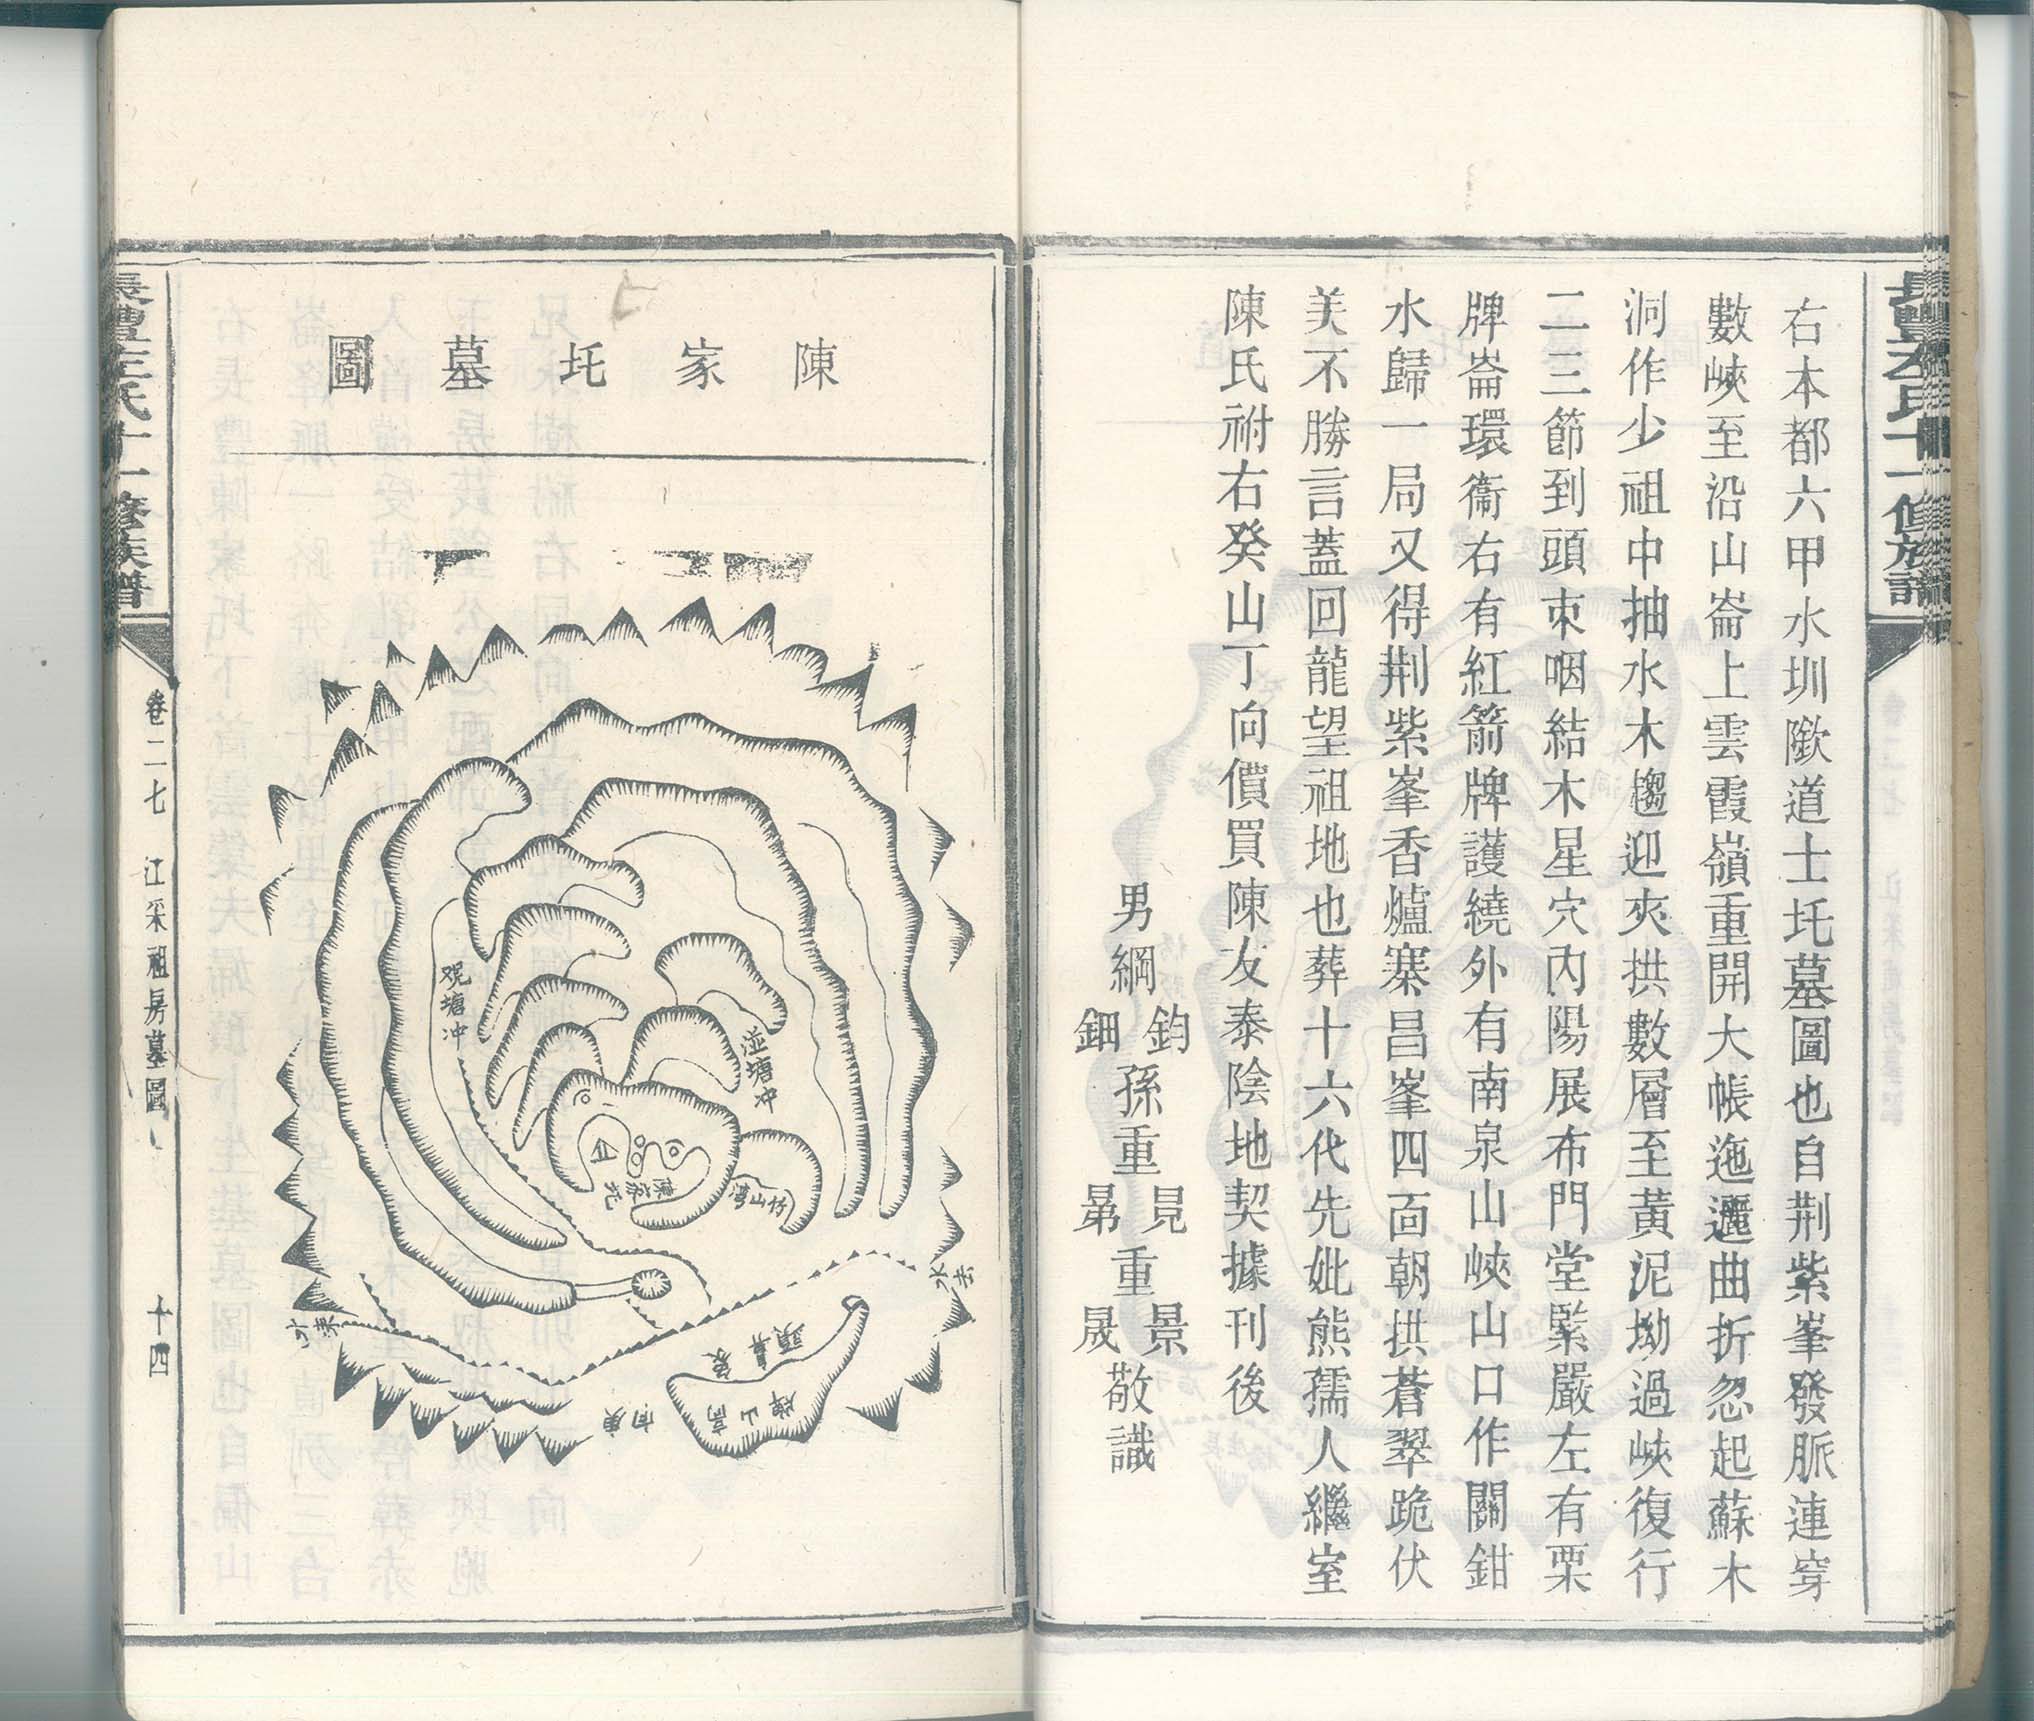 長豐左氏十一修族譜
右本都六甲水圳歐道士坵墓圖也自荆紫峯發脈連穿
數峽至沿山崙上雲霞嶺重開大帳迤邐曲折忽起蘇木
洞作少祖中抽水木趨迎夾拱數層至黃泥坳過峽復行
二三節到頭束咽結木星穴內陽展布門堂緊嚴左有栗
牌崙環衞右有紅箭牌護繞外有南泉山峽山口作關鉗
水歸一局又得荆紫峯香爐寨昌峯四面朝拱蒼翠跪伏
美不勝言蓋回龍望祖地也葬十六代先妣熊孺人繼室
陳氏祔右癸山丁向價買陳友泰陰地契據刊後
男綱鈞鈿孫重晃晜重景晟敬識
陳家坵墓圖
觀塘冲
塘冲
陳家坵
竹山灣
水去
水來
頭
高山牌
庚向
長豐左氏十一修族譜
卷二七
江采祖房墓圖
十四